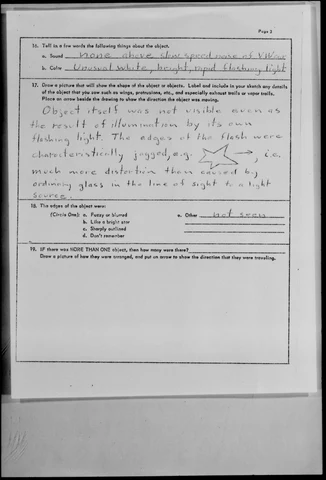 Page 3
16. Tell in a few words the following things about the object.
a. Sound none above slow speed noise of VW car
b. Color Unusual white, bright, rapid flashing light
17. Draw a picture that will show the shape of the object or objects. Label and include in your sketch any details
of the object that you saw such as wings, protrusions, etc., and especially exhaust trails or vapor trails.
Place an arrow beside the drawing to show the direction the object was moving.
Object itself was not visible even as
the result of illumination by its own
flashing light. The edges of the flash were
characteristically jagged, e.g. , i.e.
much more distortion than caused by
ordinary glass in the line of sight to a light
source.
18. The edges of the object were:
(Circle One): a. Fuzzy or blurred e. Other not seen
b. Like a bright star
c. Sharply outlined
d. Don't remember
19. IF there was MORE THAN ONE object, then how many were there?
Draw a picture of how they were arranged, and put an arrow to show the direction that they were traveling.